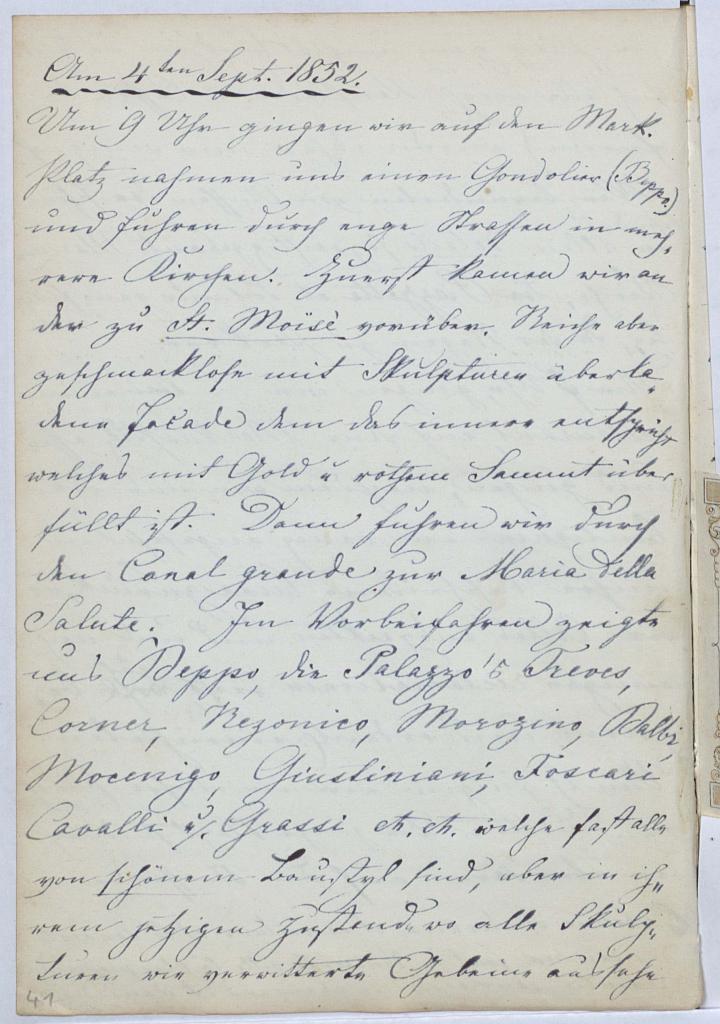 Am 4ten Sept. 1852.
Um 9 Uhr gingen wir auf den Mark.
Platz nahmen uns einen Gondolier (Beppo.)
und fuhren durch enge Strassen in meh,
rere Kirchen. Zuerst kamen wir an
der zu St. Moïsè vorüber. Reiche aber
geschmacklose mit Skulpturen überla„
dene Facade dem das innere entspricht
welches mit Gold u rothem Sammt über
füllt ist. Dann fuhren wir durch
den Canal grande zur Maria della
Salute. Im Vorbeifahren zeigte
uns Beppo, die Palazzo's Treves,
Corner, Rezonico, Morozino, Balbi,
Mocenigo, Giustiniani, Foscari
Cavalli u/. Grassi et. et. welche fast alle
von schönem Baustyl sind, aber in ih„
rem jetzigen Zustand, wo alle Skulp„
turen wie verwitterte Gebeine aussehe
41